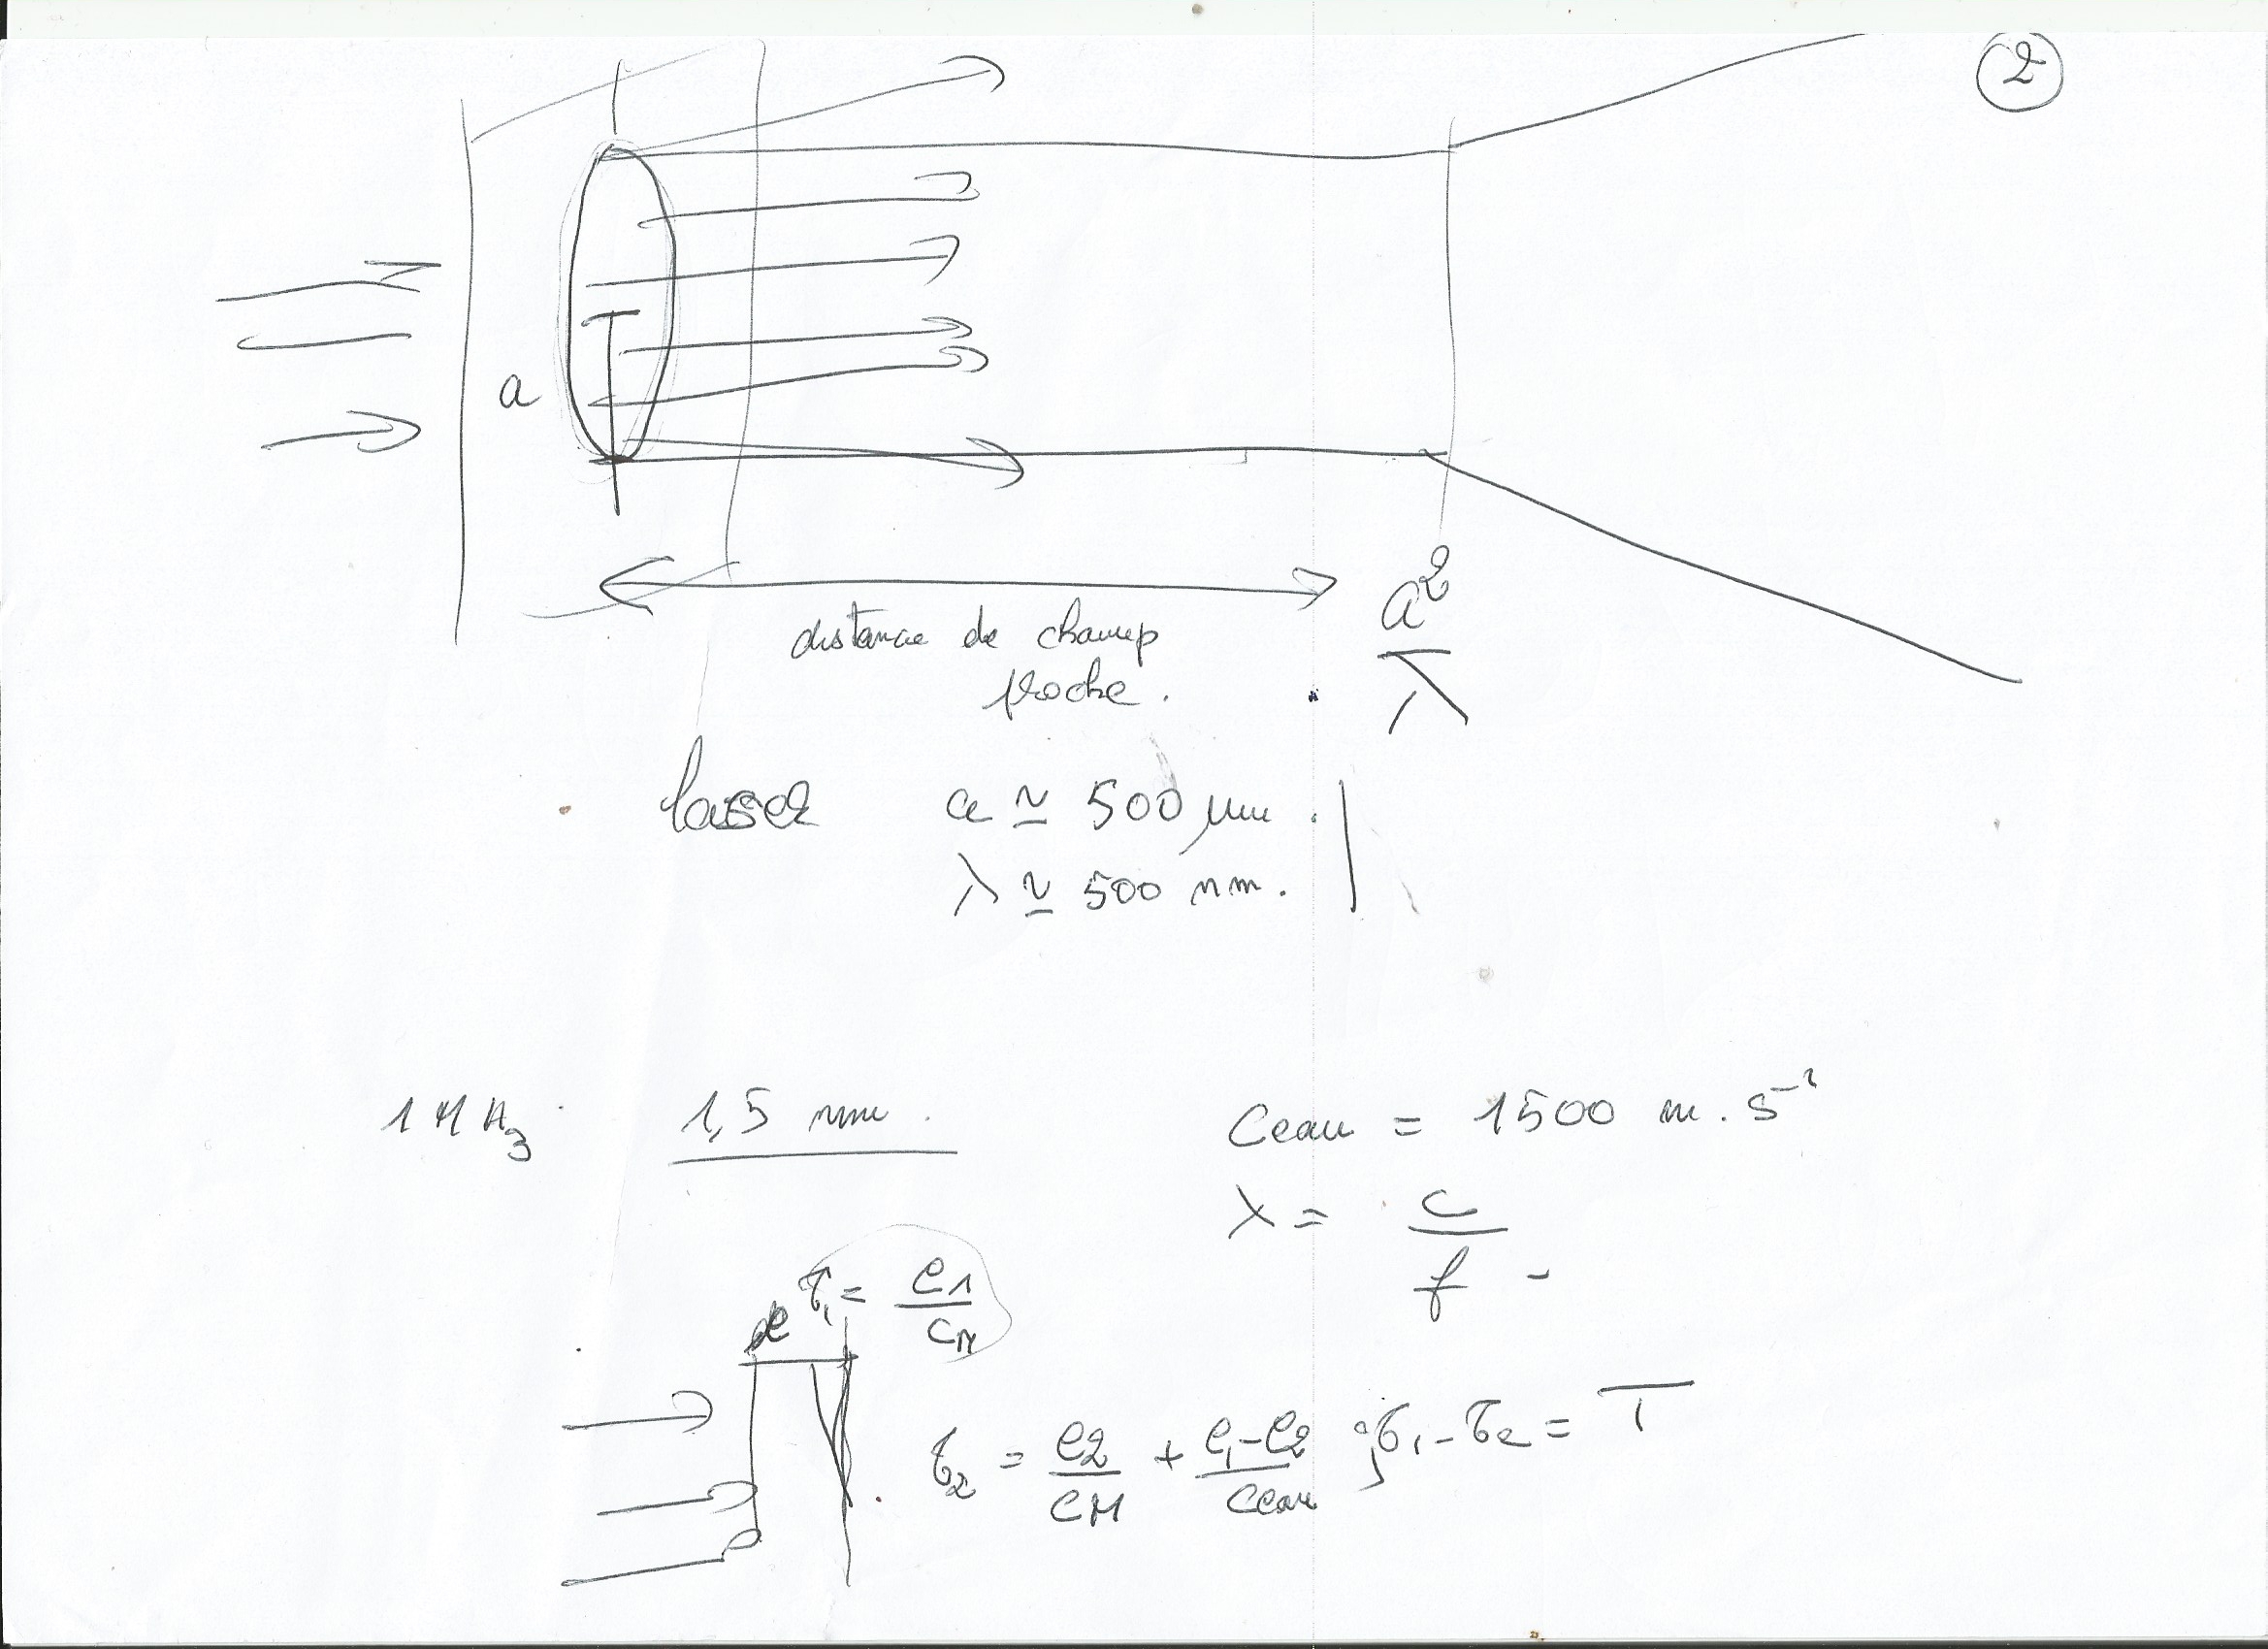 2
a
distance de champ
proche.
a²
λ
laser a ≃ 500 µm.
λ ≃ 500 nm.
1 MHz 1,5 mm.
Ceau = 1500 m.s⁻¹
λ = c/f
e τ₁ = e1/cM
τ₂ = e2/cM + e1-e2/ceau ; τ₁ - τ₂ = T